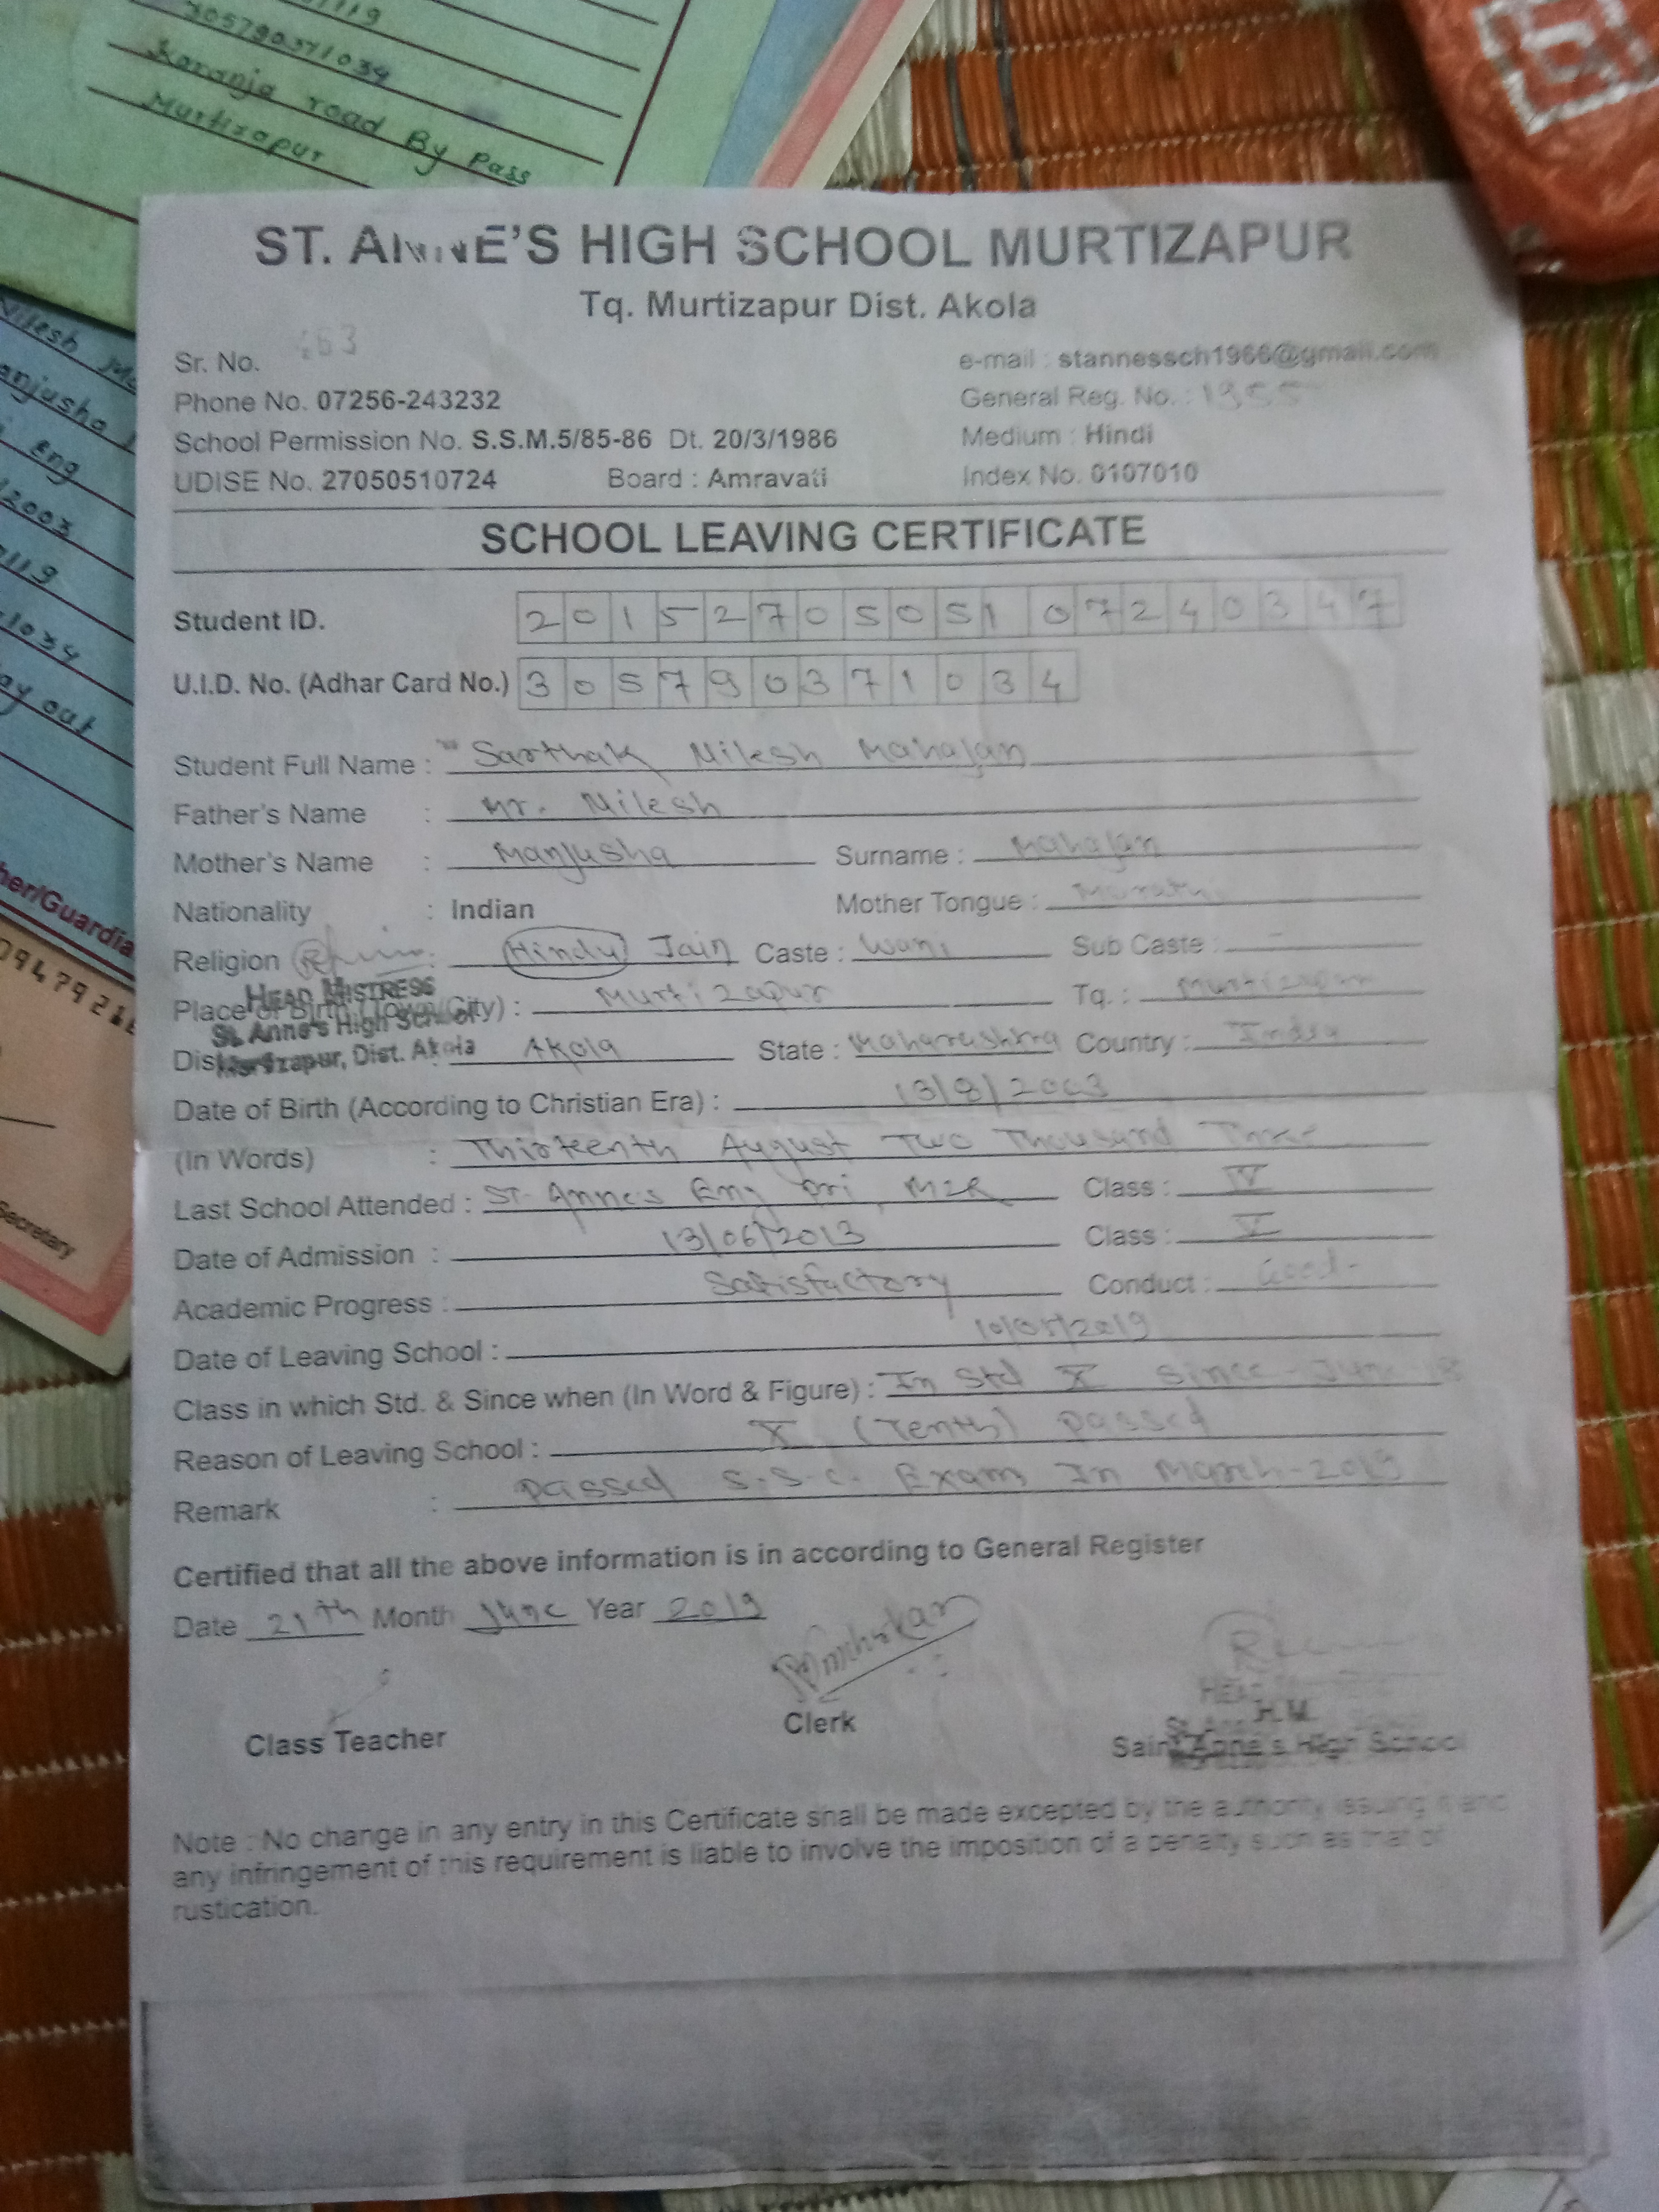 305790371034
Karanja road By Pass
Murtizapur
ST. ANNE'S HIGH SCHOOL MURTIZAPUR
Tq. Murtizapur Dist. Akola
Sr. No.
e-mail : stannessch1966@gmail.com
Phone No. 07256-243232
General Reg. No. : 1355
School Permission No. S.S.M.5/85-86 Dt. 20/3/1986
Medium : Hindi
UDISE No. 27050510724 Board : Amravati
Index No. 0107010
SCHOOL LEAVING CERTIFICATE
Student ID. 2015270505107240347
U.I.D. No. (Adhar Card No.) 305790371034
Student Full Name : Sarthak Nilesh Mahajan
Father's Name : Mr. Nilesh
Mother's Name : Manjusha Surname : Mahajan
Nationality : Indian Mother Tongue : Marathi
Religion : Hindu Jain Caste : Wani Sub Caste : -
HEAD MISTRESS
Place of Birth (Town/City) : Murtizapur Tq. : Murtizapur
St. Anne's High School
Dist. : Akola State : Maharashtra Country : India
Murtizapur, Dist. Akola
Date of Birth (According to Christian Era) : 13/8/2003
(In Words) : Thirteenth August Two Thousand Three
Last School Attended : St. Anne's Eng Pri, MZR Class : IV
Date of Admission : 13/06/2013 Class : V
Academic Progress : Satisfactory Conduct : Good.
Date of Leaving School : 10/05/2019
Class in which Std. & Since when (In Word & Figure) : In Std X Since - June 18
Reason of Leaving School : X (Tenth) passed
Remark : passed S.S.C. Exam In March-2019
Certified that all the above information is in according to General Register
Date 21th Month June Year 2019
Class Teacher
Clerk
H.M.
Saint Anne's High School
Note : No change in any entry in this Certificate shall be made excepted by the authority issuing it and
any infringement of this requirement is liable to involve the imposition of a penalty such as that of
rustication.
Eng
2003
1034
out
her/Guardia
Secretary